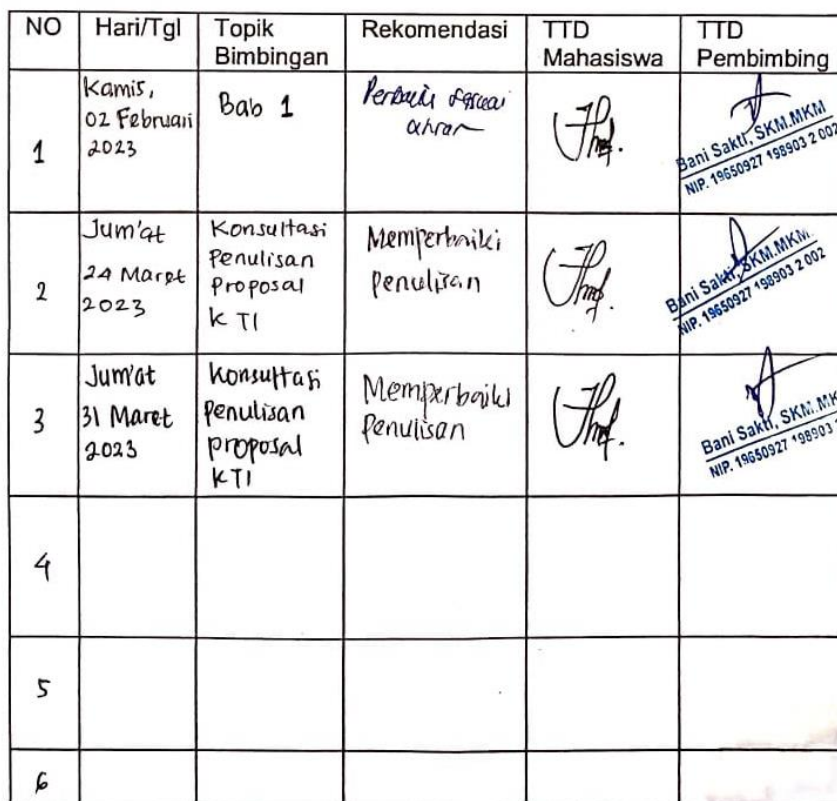 NO Hari/Tgl Topik Bimbingan Rekomendasi TTD Mahasiswa TTD Pembimbing
1
Kamis,
02 Februari
2023
Bab 1
Perbaiki sesuai
Bani Sakti, SKM.MKM
NIP. 19650927 198903 2 002
2
Jum'at
24 Maret
2023
Konsultasi
Penulisan
Proposal
KTI
Memperbaiki
Penulisan
Bani Sakti, SKM.MKM.
NIP. 19650927 198903 2 002
3
Jum'at
31 Maret
2023
Konsultasi
penulisan
proposal
KTI
Memperbaiki
Penulisan
Bani Sakti, SKM.MK
NIP. 19650927 198903
4
5
6